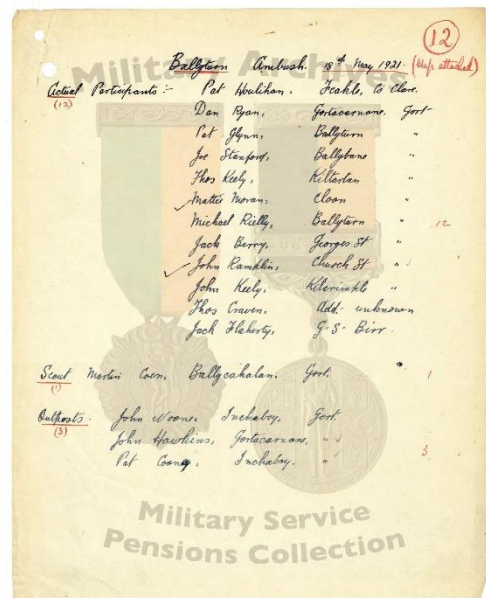 12
Ballyturn Ambush. 18th May 1921. (Map attached)
Military Archives
Actual Participants :- Pat Houlihan, Feakle, Co Clare.
(12)
Dan Ryan, Gortacarnane, Gort
Pat Glynn, Ballyturn "
Joe Stanford, Ballybane "
Thos Keely, Kiltartan "
✓ Mattie Moran, Cloon "
Michael Rielly, Ballyturn " 12
Jack Berry, Georges St "
✓ John Ramklin, Church St "
John Keely, Kilcrimple "
Thos Craven, Add. unknown
Jack Flaherty, G.S. Birr.
Scout Martin Coen, Ballycahalan, Gort. 1
(1)
Outposts. John Noone, Inchaboy, Gort
(3)
John Hawkins, Gortacarnane, "
Pat Coony, Inchaboy. " 3
Military Service
Pensions Collection